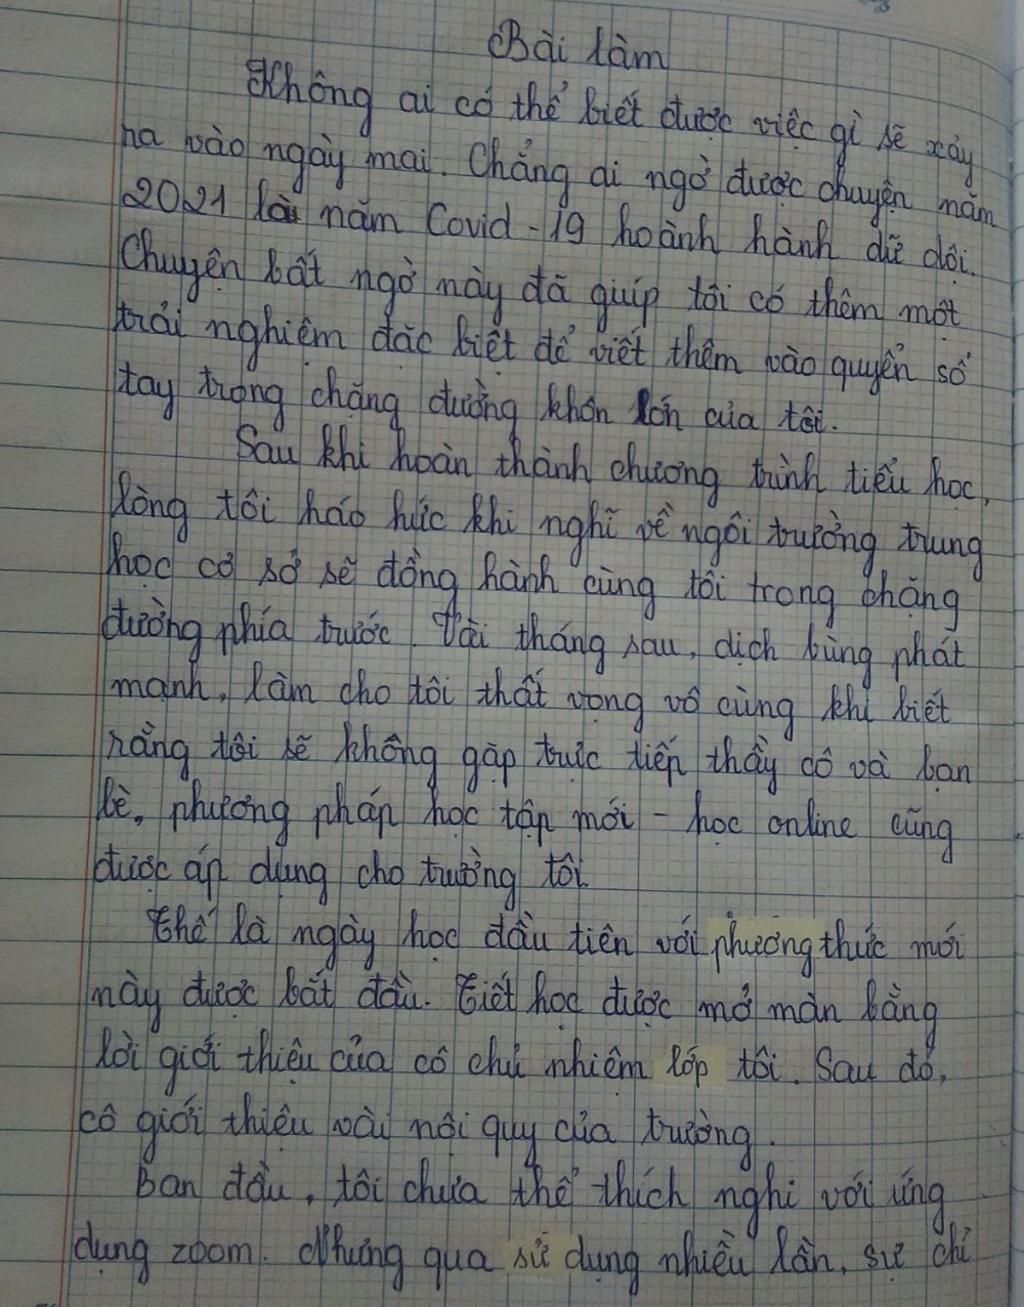 Bài làm
Không ai có thể biết được việc gì sẽ xảy
ra vào ngày mai. Chẳng ai ngờ được chuyện năm
2021 là năm Covid-19 hoành hành dữ dội.
Chuyện bất ngờ này đã giúp tôi có thêm một
trải nghiệm đặc biệt để viết thêm vào quyển sổ
tay trong chặng đường khôn lớn của tôi.
Sau khi hoàn thành chương trình tiểu học,
lòng tôi háo hức khi nghĩ về ngôi trường trung
học cơ sở sẽ đồng hành cùng tôi trong chặng
đường phía trước. Vài tháng sau, dịch bùng phát
mạnh, làm cho tôi thất vọng vô cùng khi biết
rằng tôi sẽ không gặp trực tiếp thầy cô và bạn
bè, phương pháp học tập mới - học online cũng
được áp dụng cho trường tôi.
Thế là ngày học đầu tiên với phương thức mới
này được bắt đầu. Tiết học được mở màn bằng
lời giới thiệu của cô chủ nhiệm lớp tôi. Sau đó,
cô giới thiệu vài nội quy của trường.
Ban đầu, tôi chưa thể thích nghi với ứng
dụng zoom. Nhưng qua sử dụng nhiều lần, sự chỉ